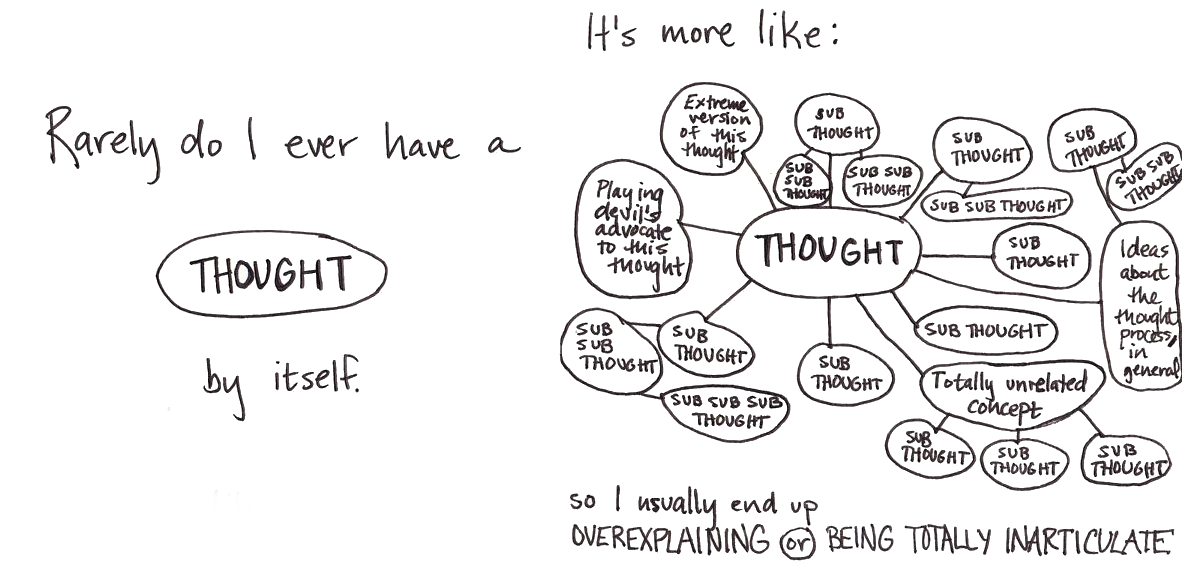 Rarely do I ever have a
THOUGHT
by itself.
It's more like:
Extreme
version
of this
thought
SUB
THOUGHT
SUB
SUB
THOUGHT
SUB SUB
THOUGHT
SUB
THOUGHT
SUB SUB THOUGHT
SUB
THOUGHT
SUB SUB
THOUGHT
Playing
devil's
advocate
to this
thought
THOUGHT
SUB
THOUGHT
Ideas
about
the
thought
process,
in
general
SUB
SUB
THOUGHT
SUB
THOUGHT
SUB SUB SUB
THOUGHT
SUB
THOUGHT
SUB THOUGHT
Totally unrelated
concept
SUB
THOUGHT
SUB
THOUGHT
SUB
THOUGHT
so I usually end up
OVEREXPLAINING or BEING TOTALLY INARTICULATE